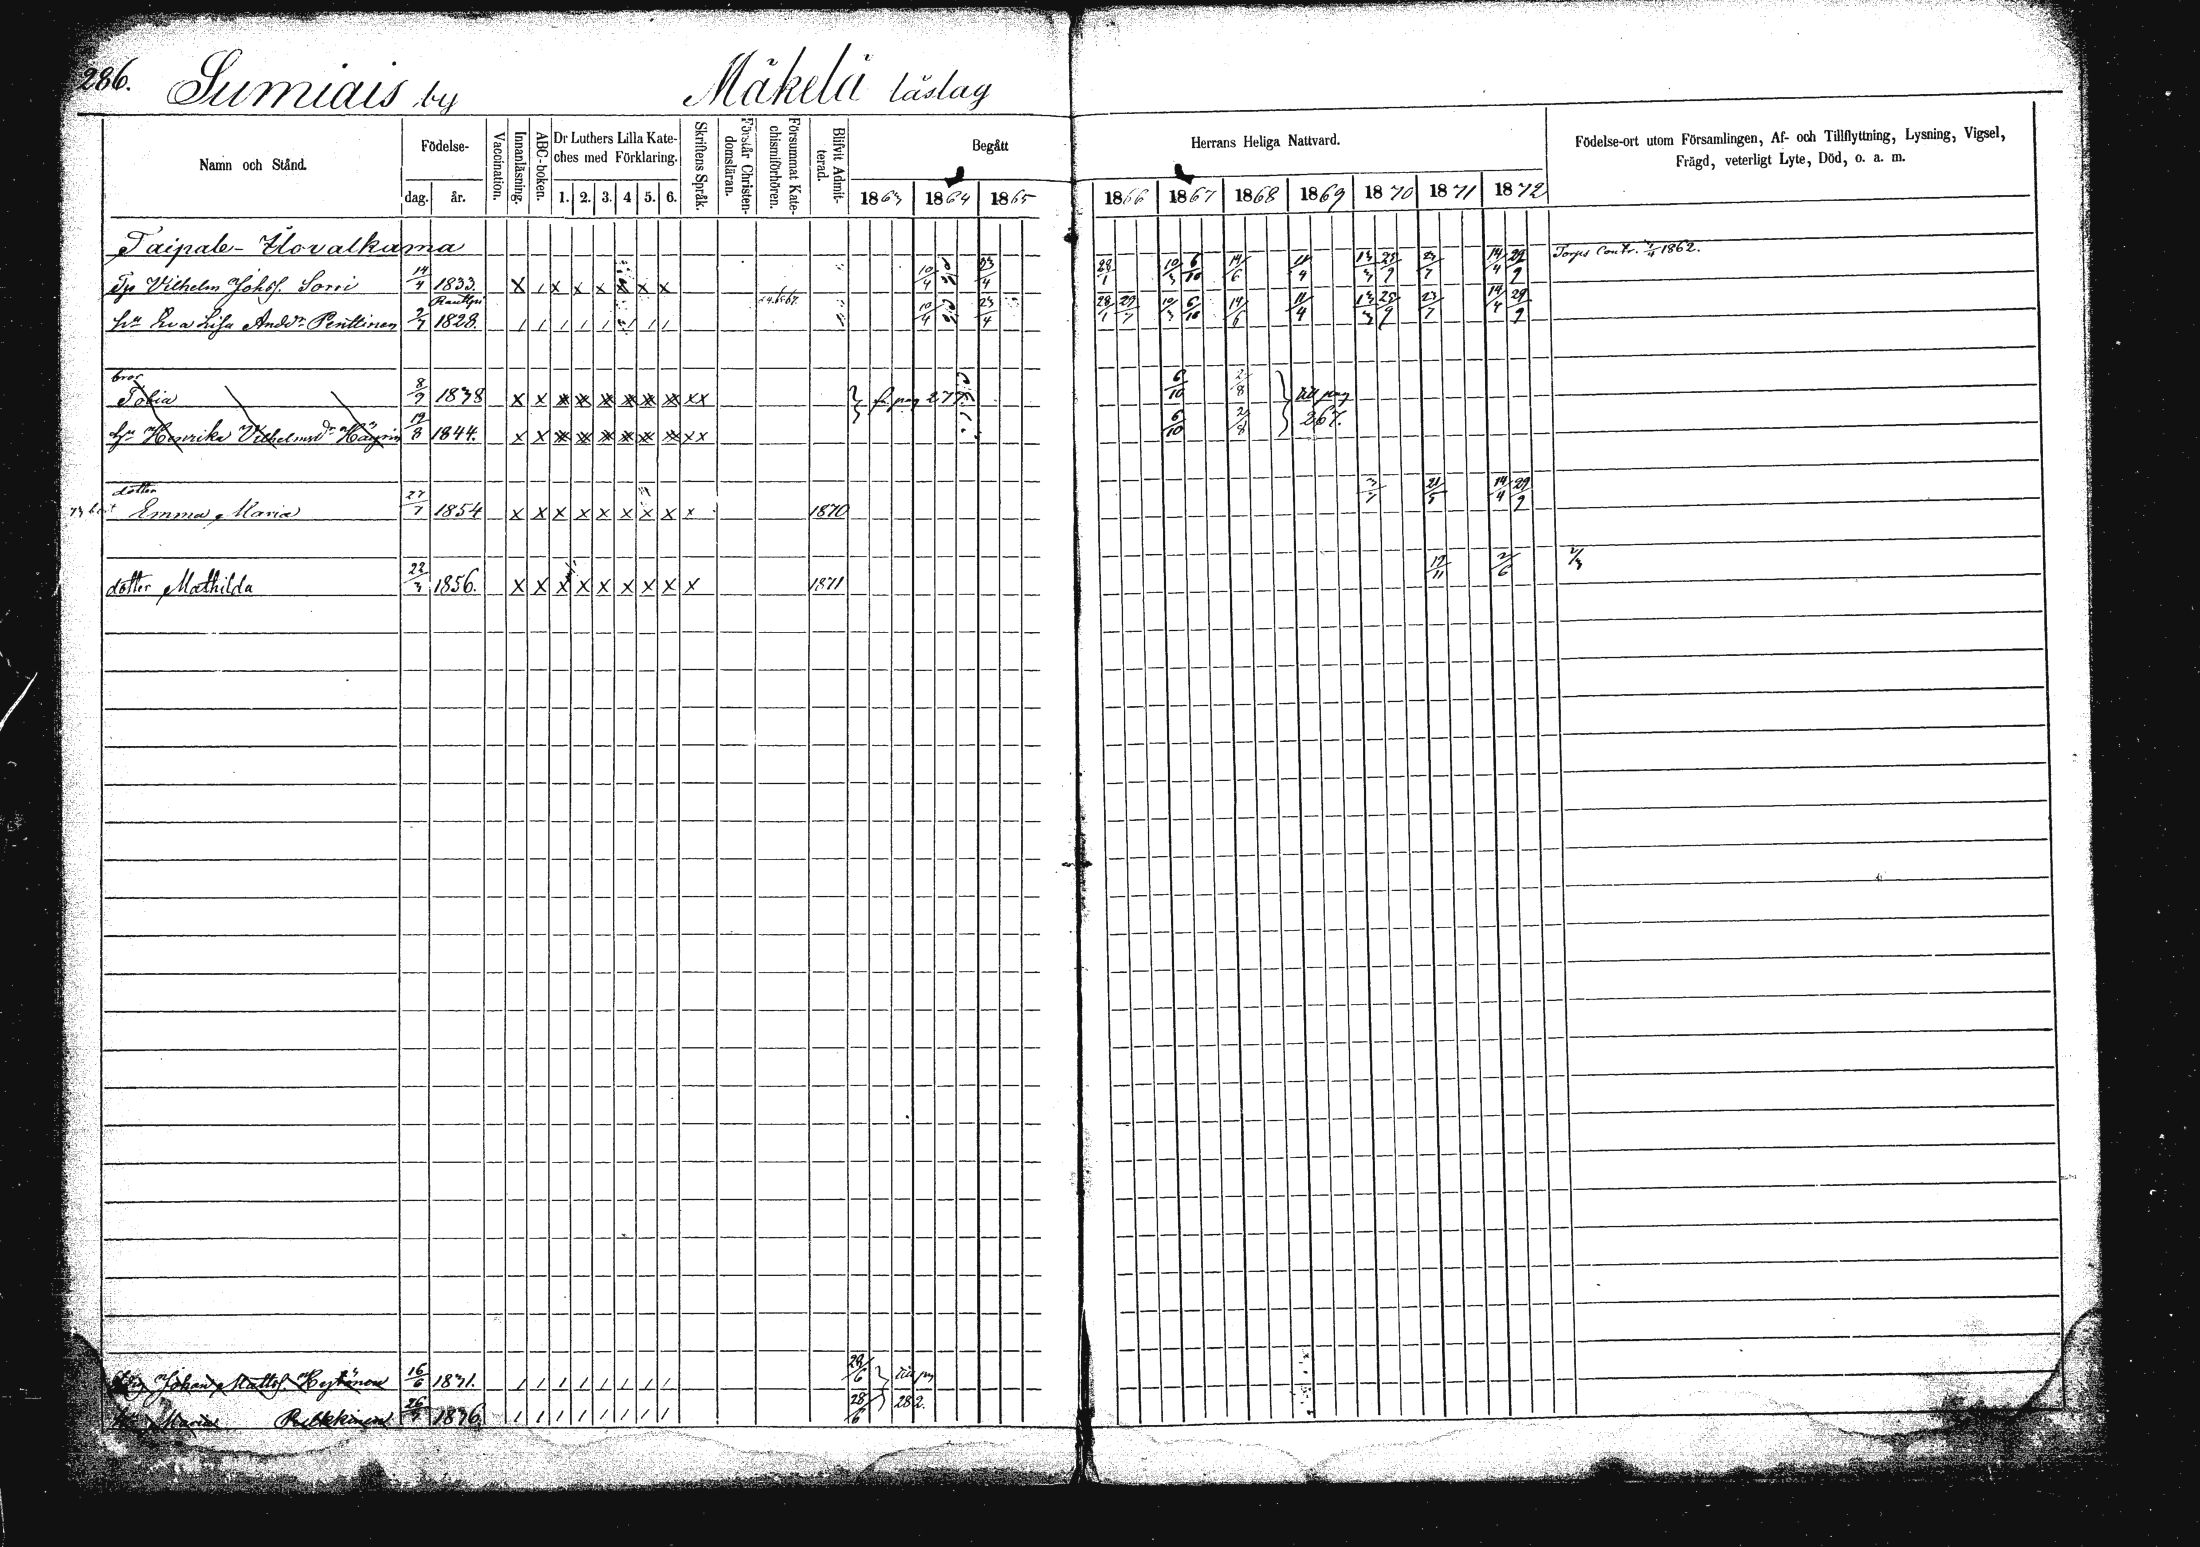 286. Sumiais by Mäkelä läslag
Namn och Stånd. Födelse- dag. år. Vaccination. Innanläsning. ABC-boken. Dr Luthers Lilla Kateches med Förklaring. 1. 2. 3. 4 5. 6. Skriftens Språk. Förstår Christendomsläran. Försummat Katechismiförhören. Blifvit Admitterad. Begått Herrans Heliga Nattvard. Födelse-ort utom Församlingen, Af- och Tillflyttning, Lysning, Vigsel, Frägd, veterligt Lyte, Död, o. a. m.
1863 1864 1865 1866 1867 1868 1869 1870 1871 1872
Taipale- Torps Contr. 1862.
Tp Vilhelm Johss. Sorri 14/4 1833. X / x x x x x x 10/4 23/4 28/1 10/3 6/10 14/6 11/4 13/3 25/9 23/7 14/4 29/9
Rautlpi
hu Eva Lisa Andsdr Penttinen 2/7 1828. / / / / / / / / 10/4 23/4 28/1 29/7 10/3 6/10 14/6 11/4 13/3 25/9 23/7 14/4 29/9
bror
Tobia 8/9 1838 x x x x x x x x xx fr. pag 277. 6/10 2/8 till pag
hu Henrika Vilhelmsdr Häyrin 19/8 1844. x x x x x x x x xx 6/10 2/8 267.
dotter
Emma Maria 27/7 1854 x x x x x x x x x 1870 3/7 21/5 14/4 29/9
dotter Mathilda 22/3 1856. x x x x x x x x x 1871 12/11 2/6 2/3
Johan Mattss. Hytönen 16/6 1831. / / / / / / / / 28/6 till pag
hu Maria Pulkkinen 26 1836 / / / / / / / / 28/6 282.